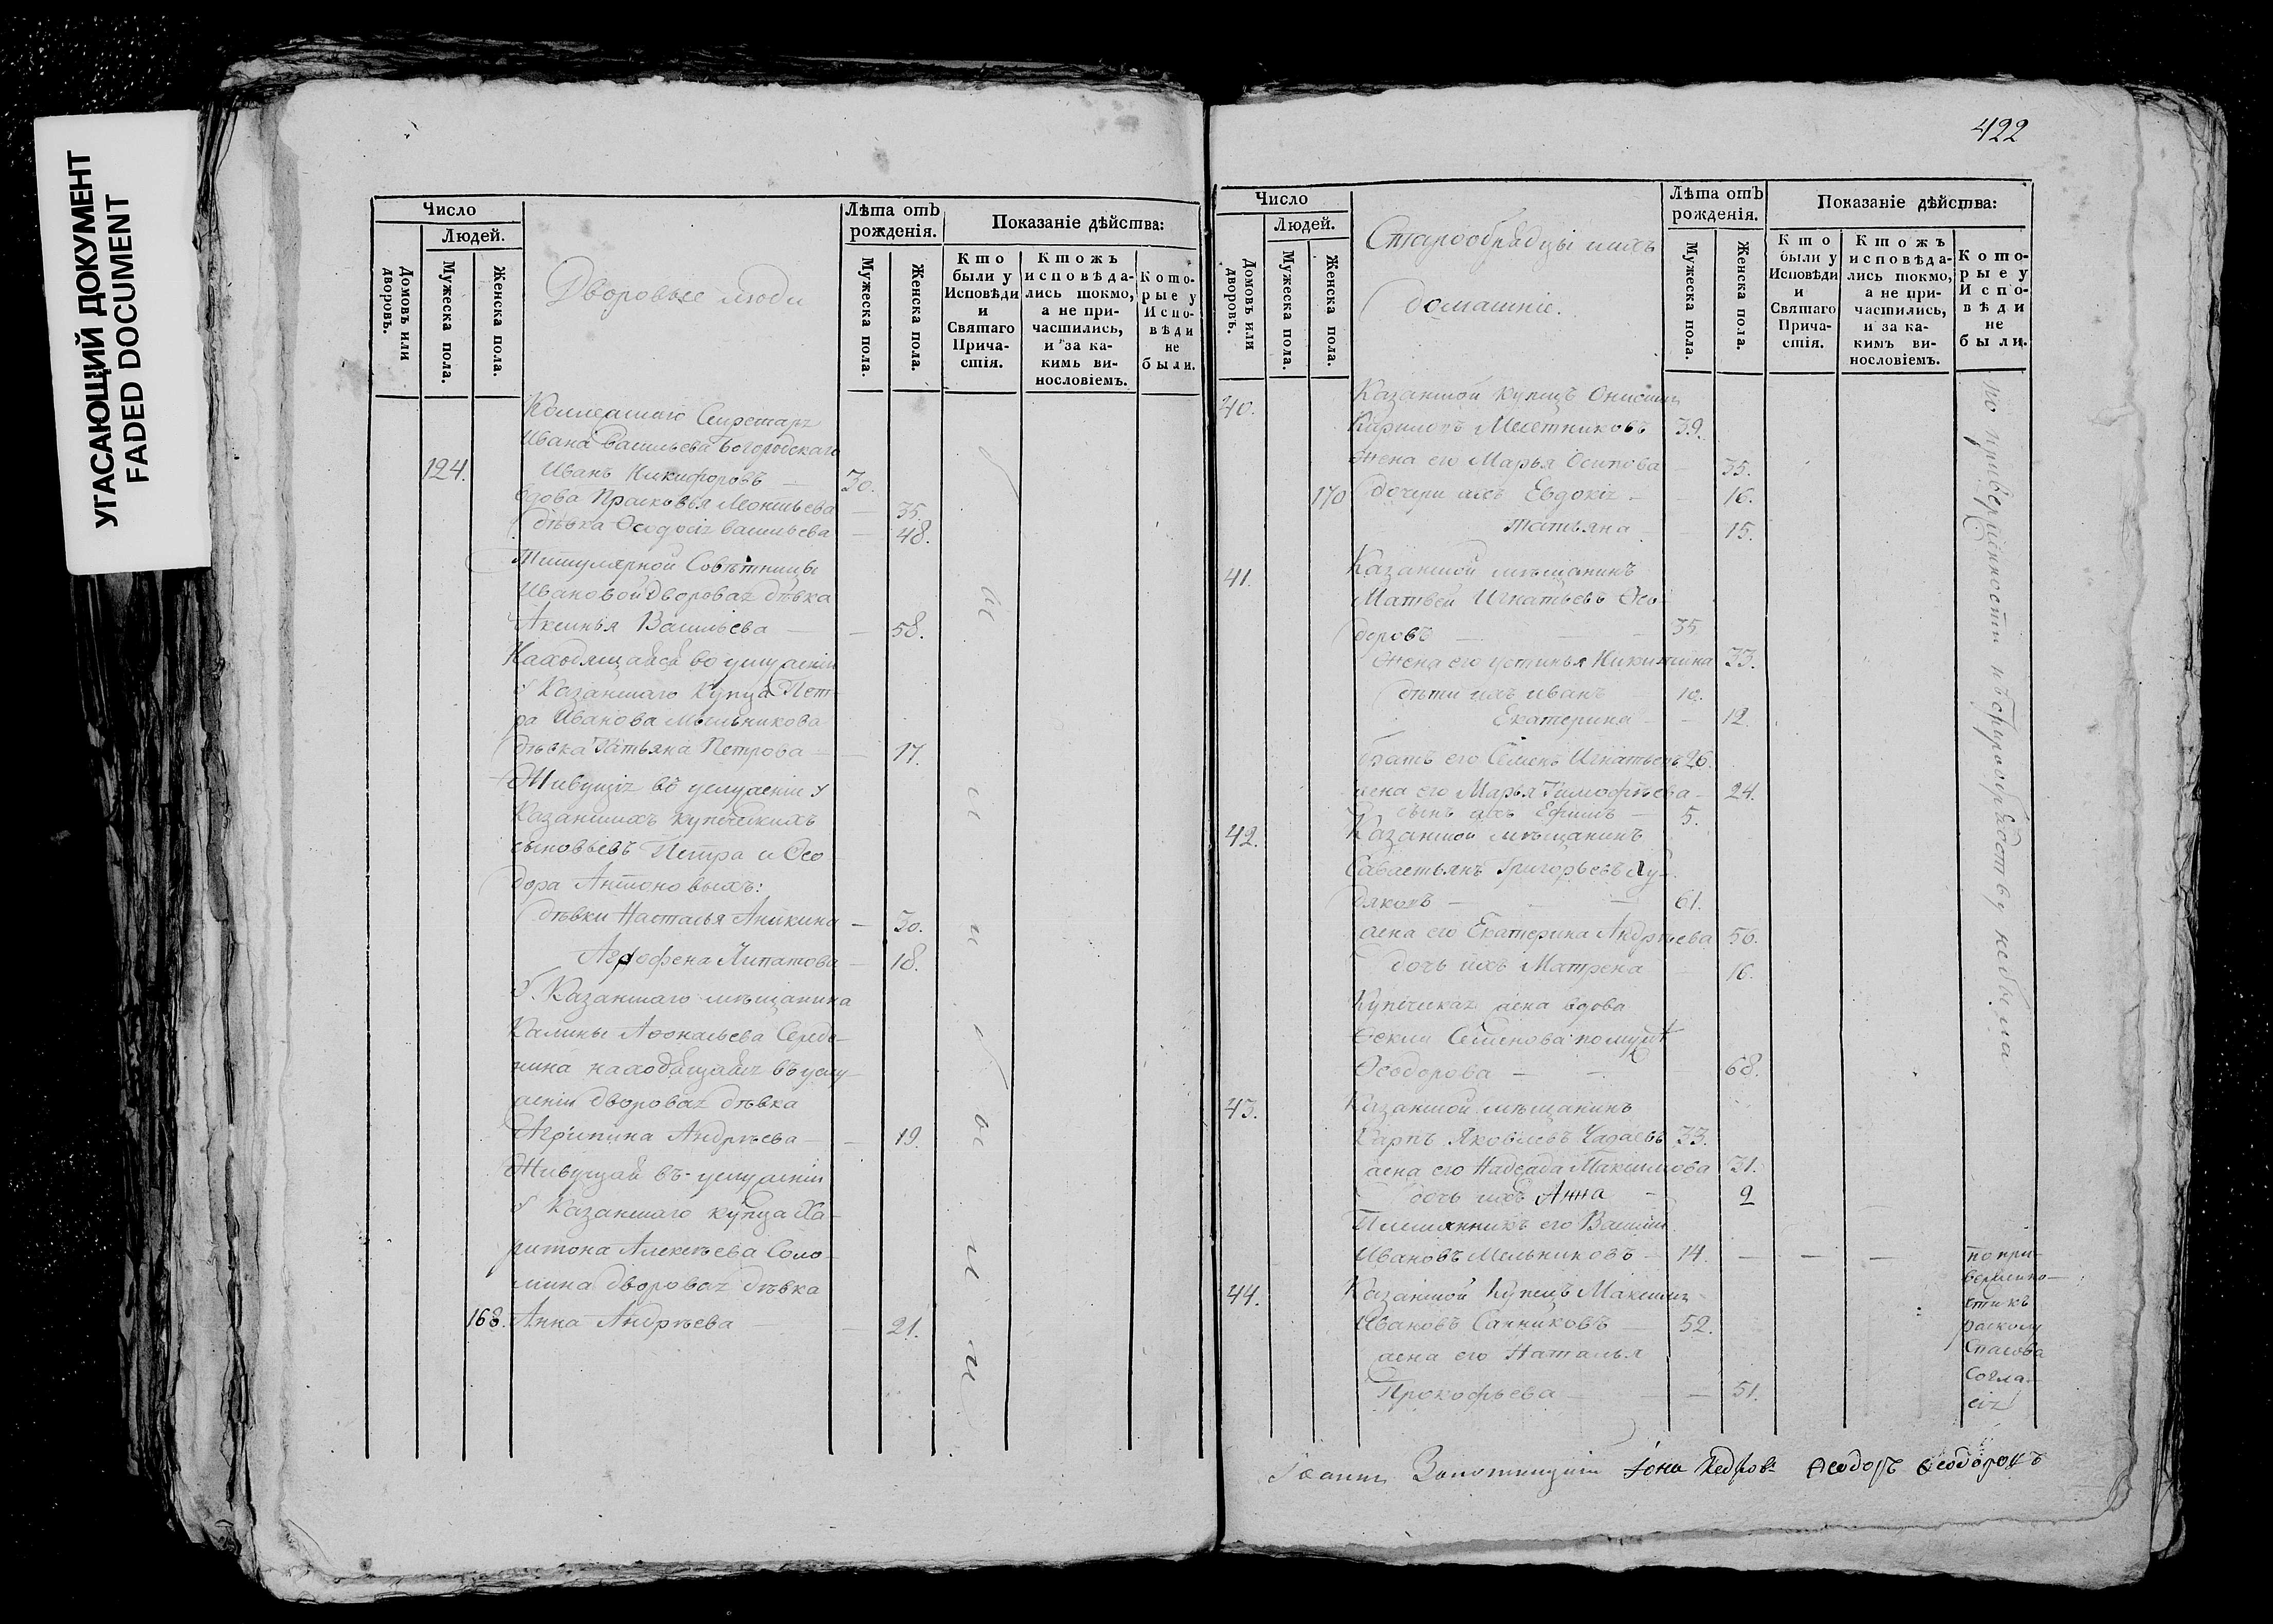 УГАСАЮЩИЙ ДОКУМЕНТ
FADED DOCUMENT
Число
Людей.
Домовъ или дворовъ.
Мужеска пола.
Женска пола.
Дворовые люди
Лѣта отъ рожденія.
Мужеска пола.
Женска пола.
Показаніе дѣйства:
Кто были у Исповѣди и Святаго Прича-стія.
Ктожъ исповѣда-лись токмо, а не при-частились, и за ка-кимъ ви-нословіемъ.
Кото-рые у Испо-вѣди не были.
Секретаря
Ивана Васильева Богородскаго
124. Иванъ Никифоровъ — 30.
вдова Прасковья Леонтьева — 35.
дѣвка Ѳеодосія Васильева — 48.
Титулярной Совѣтницы
Ивановой дворовая дѣвка
Аксинья Васильева — 58.
Находящаяся во услуженіи
у Казанскаго купца Пет-
ра Иванова Мыльникова
дѣвка Татьяна Петрова — 17.
Живущія въ услуженіи у
Казанскихъ купеческихъ
сыновьевъ Петра и Ѳео
дора Антоновыхъ:
дѣвки Настасья Аникина — 30.
Агрофена Липатова — 18.
У Казанскаго мѣщанина
Калины Афонасьева Середо-
нина находящаяся въ услу-
женіи дворовая дѣвка
Агрипина Андрѣева — 19.
Живущая въ услуженіи
у Казанскаго купца Ха-
ритона Алексѣева Соло-
мина дворовая дѣвка
168. Анна Андрѣева — 21.
были
422
Число
Людей.
Домовъ или дворовъ.
Мужеска пола.
Женска пола.
Старообрядцы и ихъ
домашніе.
Лѣта отъ рожденія.
Мужеска пола.
Женска пола.
Показаніе дѣйства:
Кто были у Исповѣди и Святаго Прича-стія.
Ктожъ исповѣда-лись токмо, а не при-частились, и за ка-кимъ ви-нословіемъ.
Кото-рые у Испо-вѣди не были.
40. Казанской купецъ Онисимъ
39.
жена его Марья Осипова — 35.
170 дочери ихъ Евдокія — 16.
Татьяна — 15.
41. Казанской мѣщанинъ
Матвей Игнатьевъ Ѳео
доровъ — 35
жена его Устинья Никитина 33.
дѣти ихъ Иванъ 10.
Екатерина — 12.
братъ его Семенъ Игнатьевъ 26.
жена его Марья Тимофѣева — 24.
сынъ ихъ Ефимъ — 5.
42. Казанской мѣщанинъ
Савастьянъ Григорьевъ
61.
жена его Екатерина Андрѣева 56.
дочь ихъ Матрена 16.
Купеческая жена вдова
Семенова по мужѣ
Ѳеодорова — 68.
43. Казанской мѣщанинъ
Карпъ Яковлевъ 33.
жена его Надежда Максимова 31.
дочь ихъ Анна — 9
Племянникъ его Василій
Ивановъ Мельниковъ — 14.
44. Казанской Купецъ Максимъ
Ивановъ Санниковъ 52.
жена его Наталья
Прокофьева — 51.
по приверженности къ старообрядству не были
по при-
вержено-
сти къ
расколу
Спасова
Согла-
сія
Іоаннъ Іона Кедровъ Ѳеодоръ Ѳеодоровъ